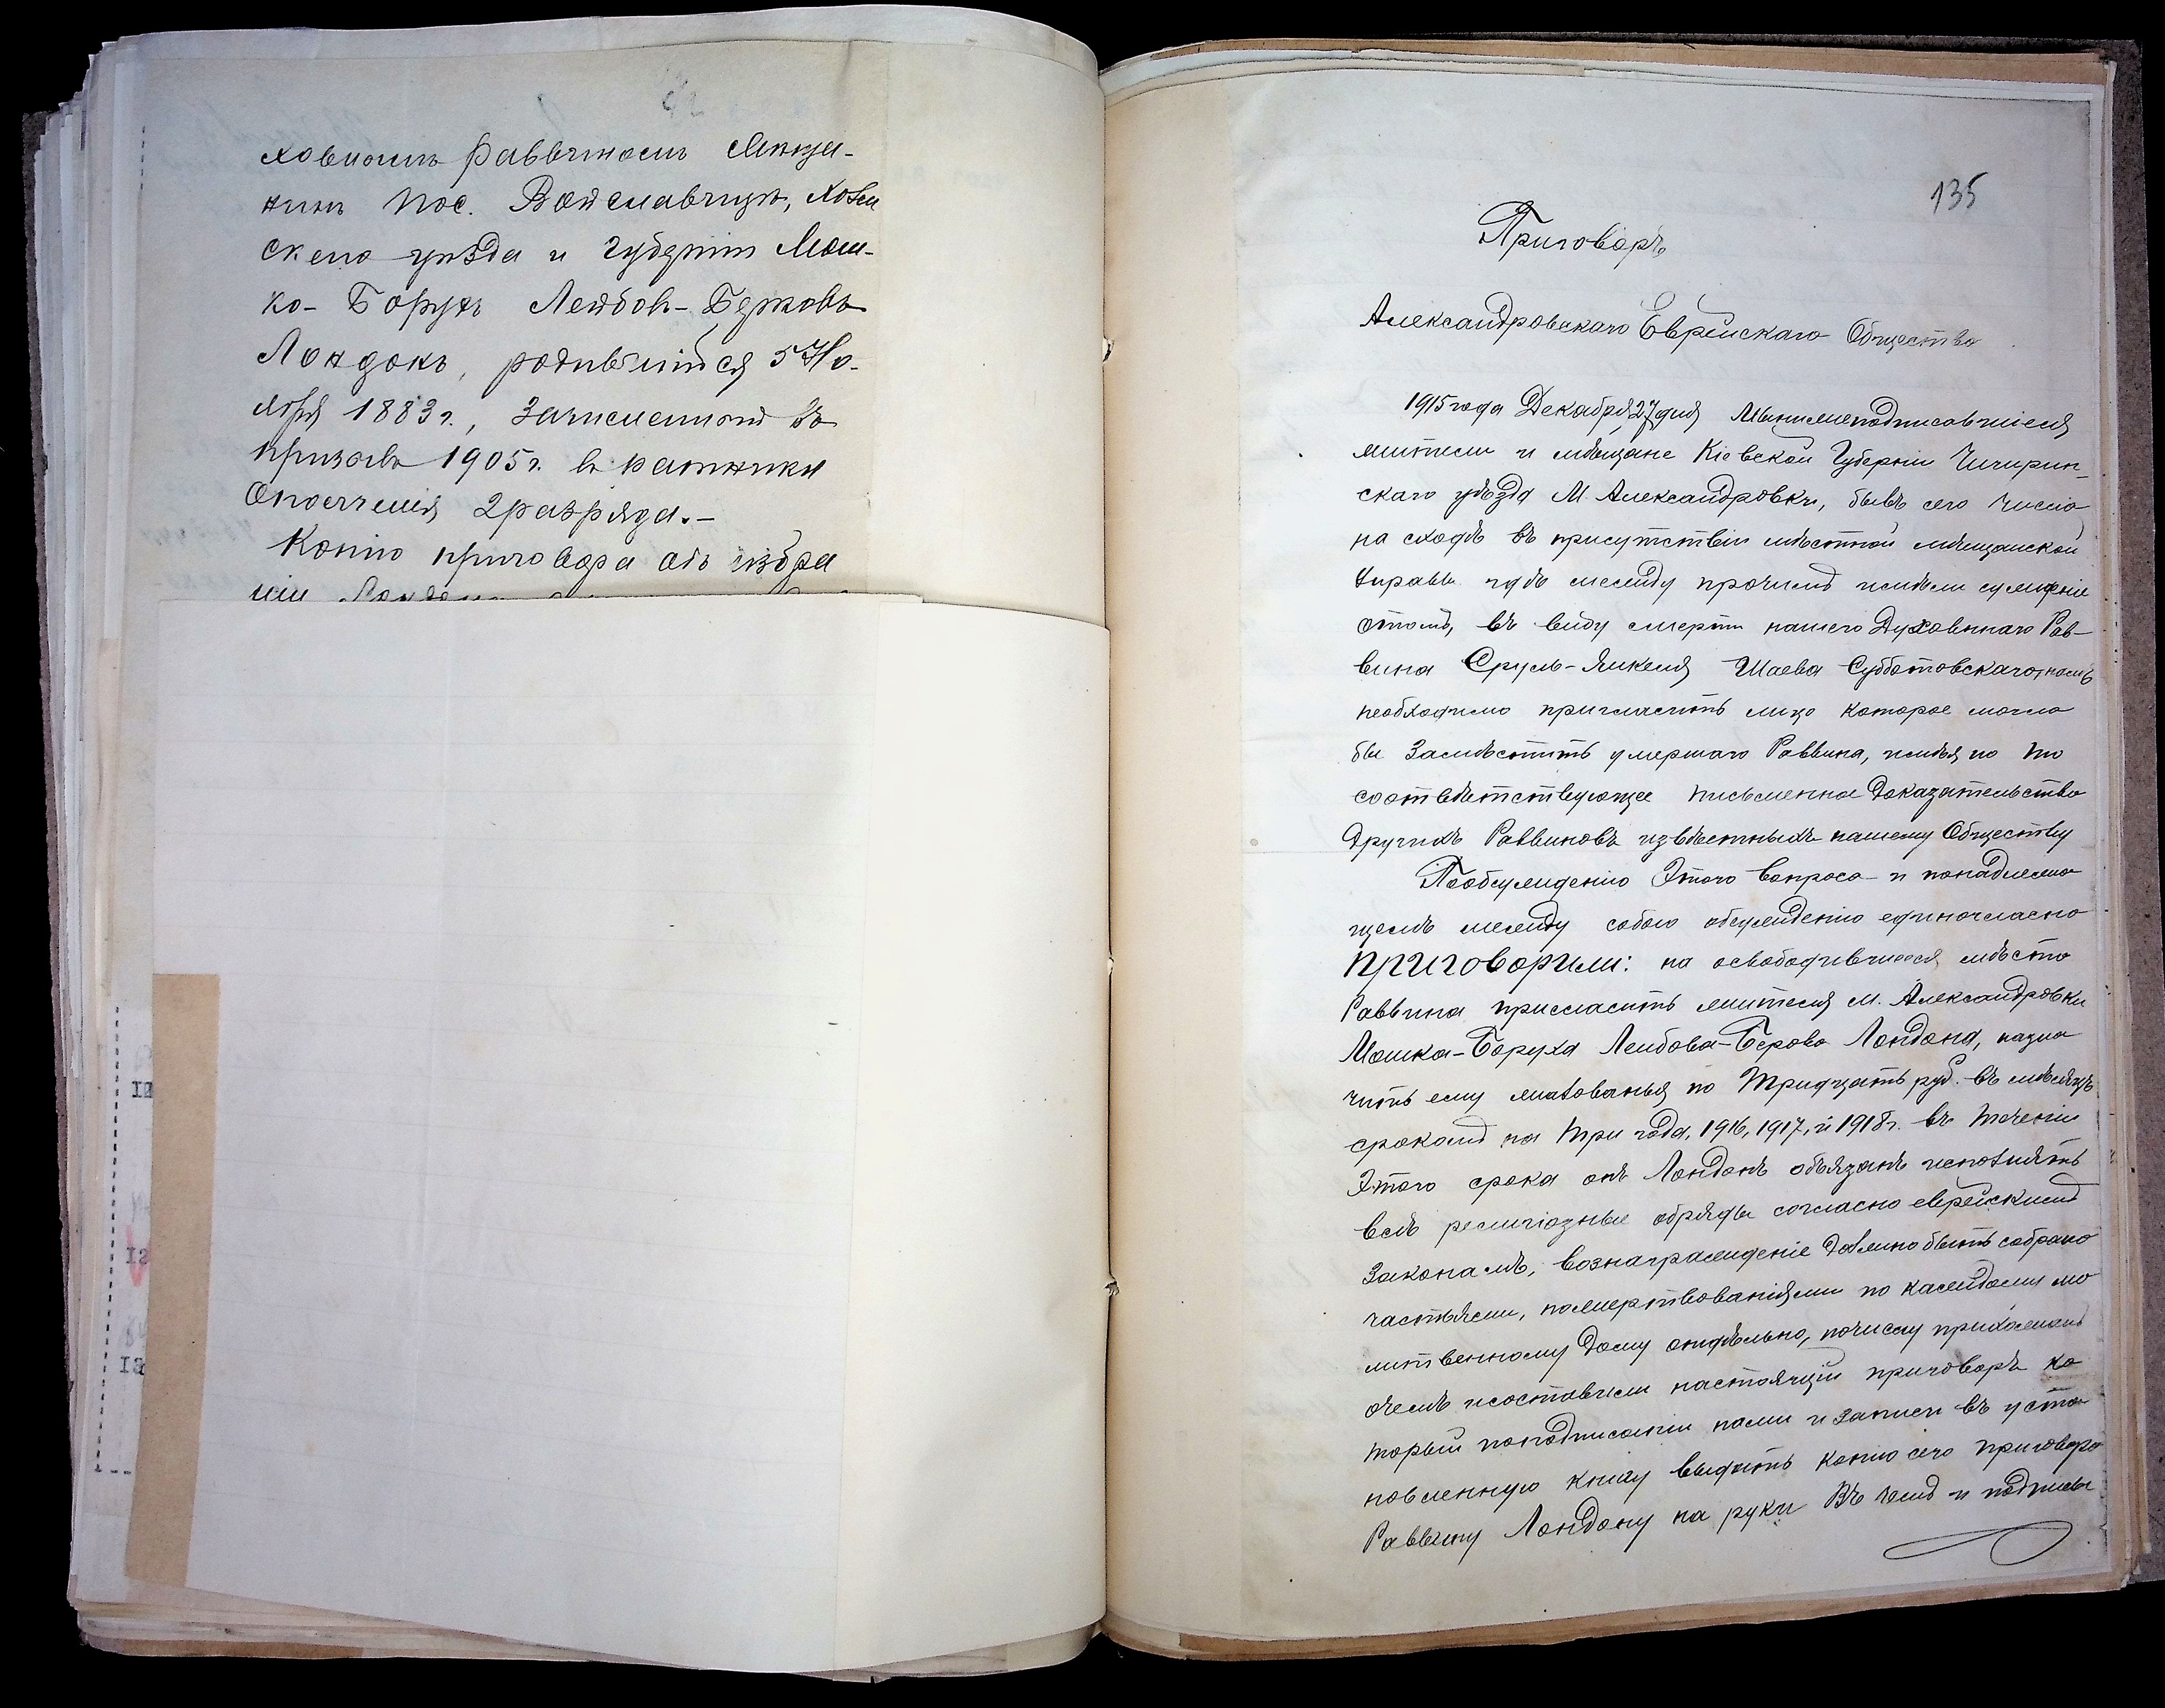 ховнымъ раввиномъ мѣща-
нинъ пос. Войславицъ, Холм
скаго уѣзда и губерніи Мош-
ко-Борухъ Лейбовъ-Берковъ
Лондонъ, родившійся 5 Но-
ября 1883 г., зачисленный въ
призывъ 1905 г. въ ратники
Ополченія 2 разряда.-
Копію приговора объ избра
ніи
135
Приговоръ
Александровскаго Еврейскаго Общества
1915 года Декабря 27 дня Мынижеподписавшіеся
жители и мѣщане Кіевской Губерніи Чигирин-
скаго уѣзда М. Александровки, бывъ сего числа
на сходѣ въ присутствіи мѣстной мѣщанской
Управы гдѣ между прочимъ имѣли сужденіе
отомъ, въ виду смерти нашего Духовнаго Рав-
вина Сруль-Янкеля Шаева Субботовскаго, намъ
необходимо пригласить лицо которое могло
бы замѣстить умершаго Раввина, имѣя но то
соотвѣтствующее письменное доказательство
другихъ Раввиновъ извѣстныхъ нашему Обществу
Пообсужденію Этого вопроса и понадлежа
щемъ между собою обсужденію единогласно
приговорили: на освободившееся мѣсто
Раввина пригласить жителя м. Александровки
Мошка-Боруха Лейбова-Берова Лондона, назна
чить ему жалованья по тридцать руб. въ мѣсяцъ
срокомъ на три года, 1916, 1917, и 1918 г. въ теченіи
Этого срока онъ Лондонъ обязанъ исполнять
всѣ религіозные обряды согласно еврейскимъ
законамъ, вознагражденіе должно быть собрано
частьями, пожертвованіями по каждому мо
литвенному дому отдѣльно, почислу прихожанъ
очемъ исоставили настоящій приговоръ ко
торый поподписаніи нами и записи въ уста
новленную книгу выдать копію сего приговора
Раввину Лондону на руки Въ чемъ и подписы